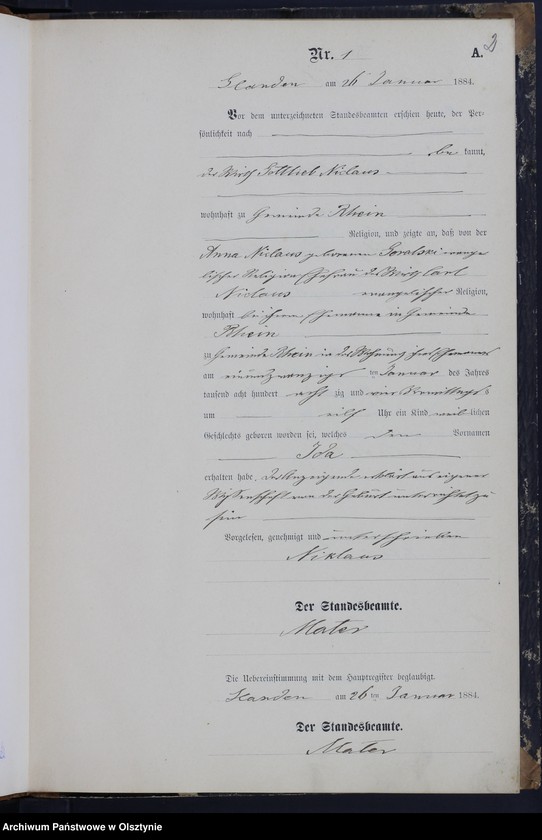 Nr. 1 A. 2
Skanden am 26 Januar 1884.
Vor dem unterzeichneten Standesbeamten erschien heute, der Per-
sönlichkeit nach
be kannt,
der Wirth Gottlieb Niclaus
wohnhaft zu Gemeinde Rhein
Religion, und zeigte an, daß von der
Anna Niclaus geborenen Goralski evange
lischer Religion Ehefrau des Wirth Carl
Niclaus evangelischer Religion,
wohnhaft bei ihrem Ehemanne in Gemeinde
Rhein
zu Gemeinde Rhein in der Wohnung ihres Ehemannes
am einundzwanzigs ten Januar des Jahres
tausend acht hundert acht zig und vier Vormittags
um eilf Uhr ein Kind weib lichen
Geschlechts geboren worden sei, welches den Vornamen
Ida
erhalten habe. Der Anzeigende erklärt aus eigener
Wissenschaft von der Geburt unterrichtet zu
sein
Vorgelesen, genehmigt und unterschrieben
Niklaus
Der Standesbeamte.
Mater
Die Uebereinstimmung mit dem Hauptregister beglaubigt.
Skanden am 26 ten Januar 1884.
Der Standesbeamte.
Mater
Archiwum Państwowe w Olsztynie